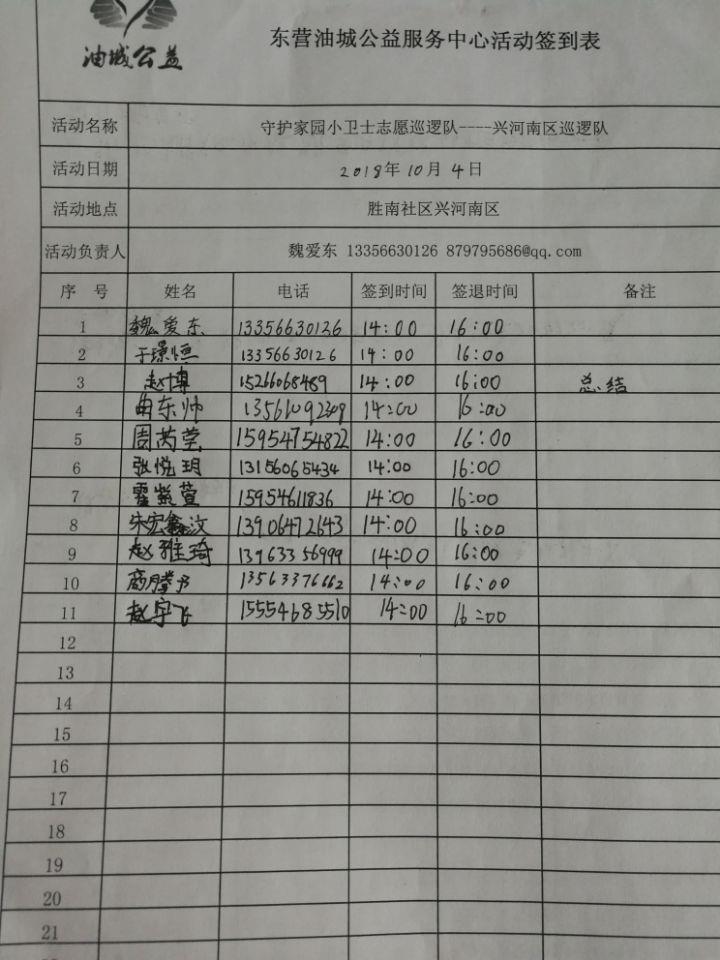 油城公益
东营油城公益服务中心活动签到表
活动名称 守护家园小卫士志愿巡逻队----兴河南区巡逻队
活动日期 2018年10月4日
活动地点 胜南社区兴河南区
活动负责人 魏爱东 13356630126 879795686@qq.com
序 号 姓名 电话 签到时间 签退时间 备注
1 魏爱东 13356630126 14:00 16:00
2 于璟恒 13356630126 14:00 16:00
3 赵博 15266068489 14:00 16:00 总结
4 曲东帅 14:00 16:00
5 周芮莹 15954754822 14:00 16:00
6 张悦玥 13156065434 14:00 16:00
7 霍紫萱 15954611836 14:00 16:00
8 宋宏鑫汶 13906472643 14:00 16:00
9 赵雅琦 13963356999 14:00 16:00
10 13563376662 14:00 16:00
11 赵宇飞 15554685510 14:00 16:00
12
13
14
15
16
17
18
19
20
21